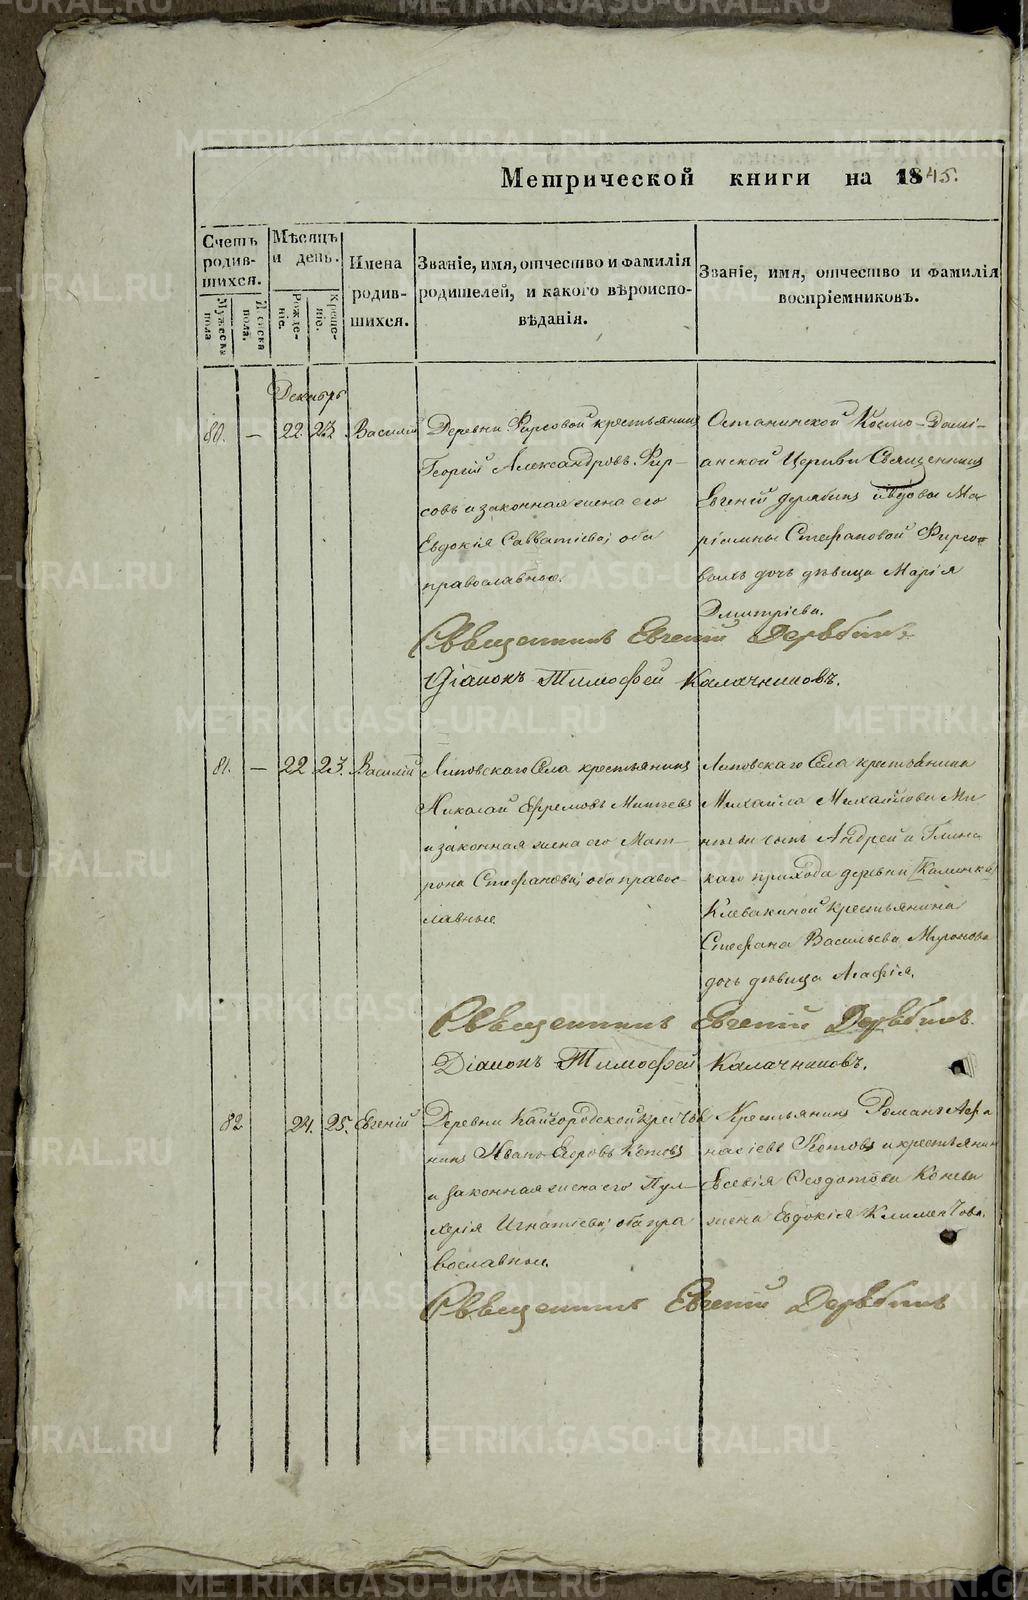 Метрической книги на 1845.
Счетъ родившихся.
Мѣсяцъ и день.
Имена родившихся.
Званіе, имя, отчество и фамилія родителей, и какого вѣроисповѣданія.
Званіе, имя, отчество и фамилія воспріемниковъ.
Мужеска пола
Женска пола.
Рожденіе.
Крещеніе.
Декабрь
80. — 22. 23. Василій
Деревни Фирсовой крестьянинъ
Георгій Александровъ Фир-
совъ и законная жена его
Евдокія Савватіева; оба
православные.
Останинской Космо-Дамі-
анской Церкви Священникъ
Евгеній Дерябинъ и вдовы Ма
ріамны Стефановой Фирсо-
выхъ дочь дѣвица Марія
Дмитріева.
Священникъ Евгеній Дерябинъ
Діаконъ Тимофей Калачниковъ.
81. — 22 23. Василій
Липовскаго Села крестьянинъ
Николай Ефремовъ Минѣевъ
и законная жена его Мат-
рона Стефанова; оба правос-
лавные
Липовскаго Села крестьянина
Михаила Михайлова Ми
нѣева сынъ Андрей и Глинс
каго прихода деревни (Каменки)
Клевакиной крестьянина
Стефана Васильева Миронова
дочь дѣвица Агафія.
Священникъ Евгеній Дерябинъ.
Діаконъ Тимофей Калачниковъ.
82 24. 25. Евгеній
Деревни Кайгородской крестья
нинъ Иванъ Егоровъ Котовъ
и законная жена его Пул-
херія Игнатіева; оба пра
вославные.
Крестьянинъ Романъ Афа
насіевъ Котовъ и крестьянина
Евсевія Феодотова Конева
жена Евдокія Климентова.
Священникъ Евгеній Дерябинъ
METRIKI.GASO-URAL.RU